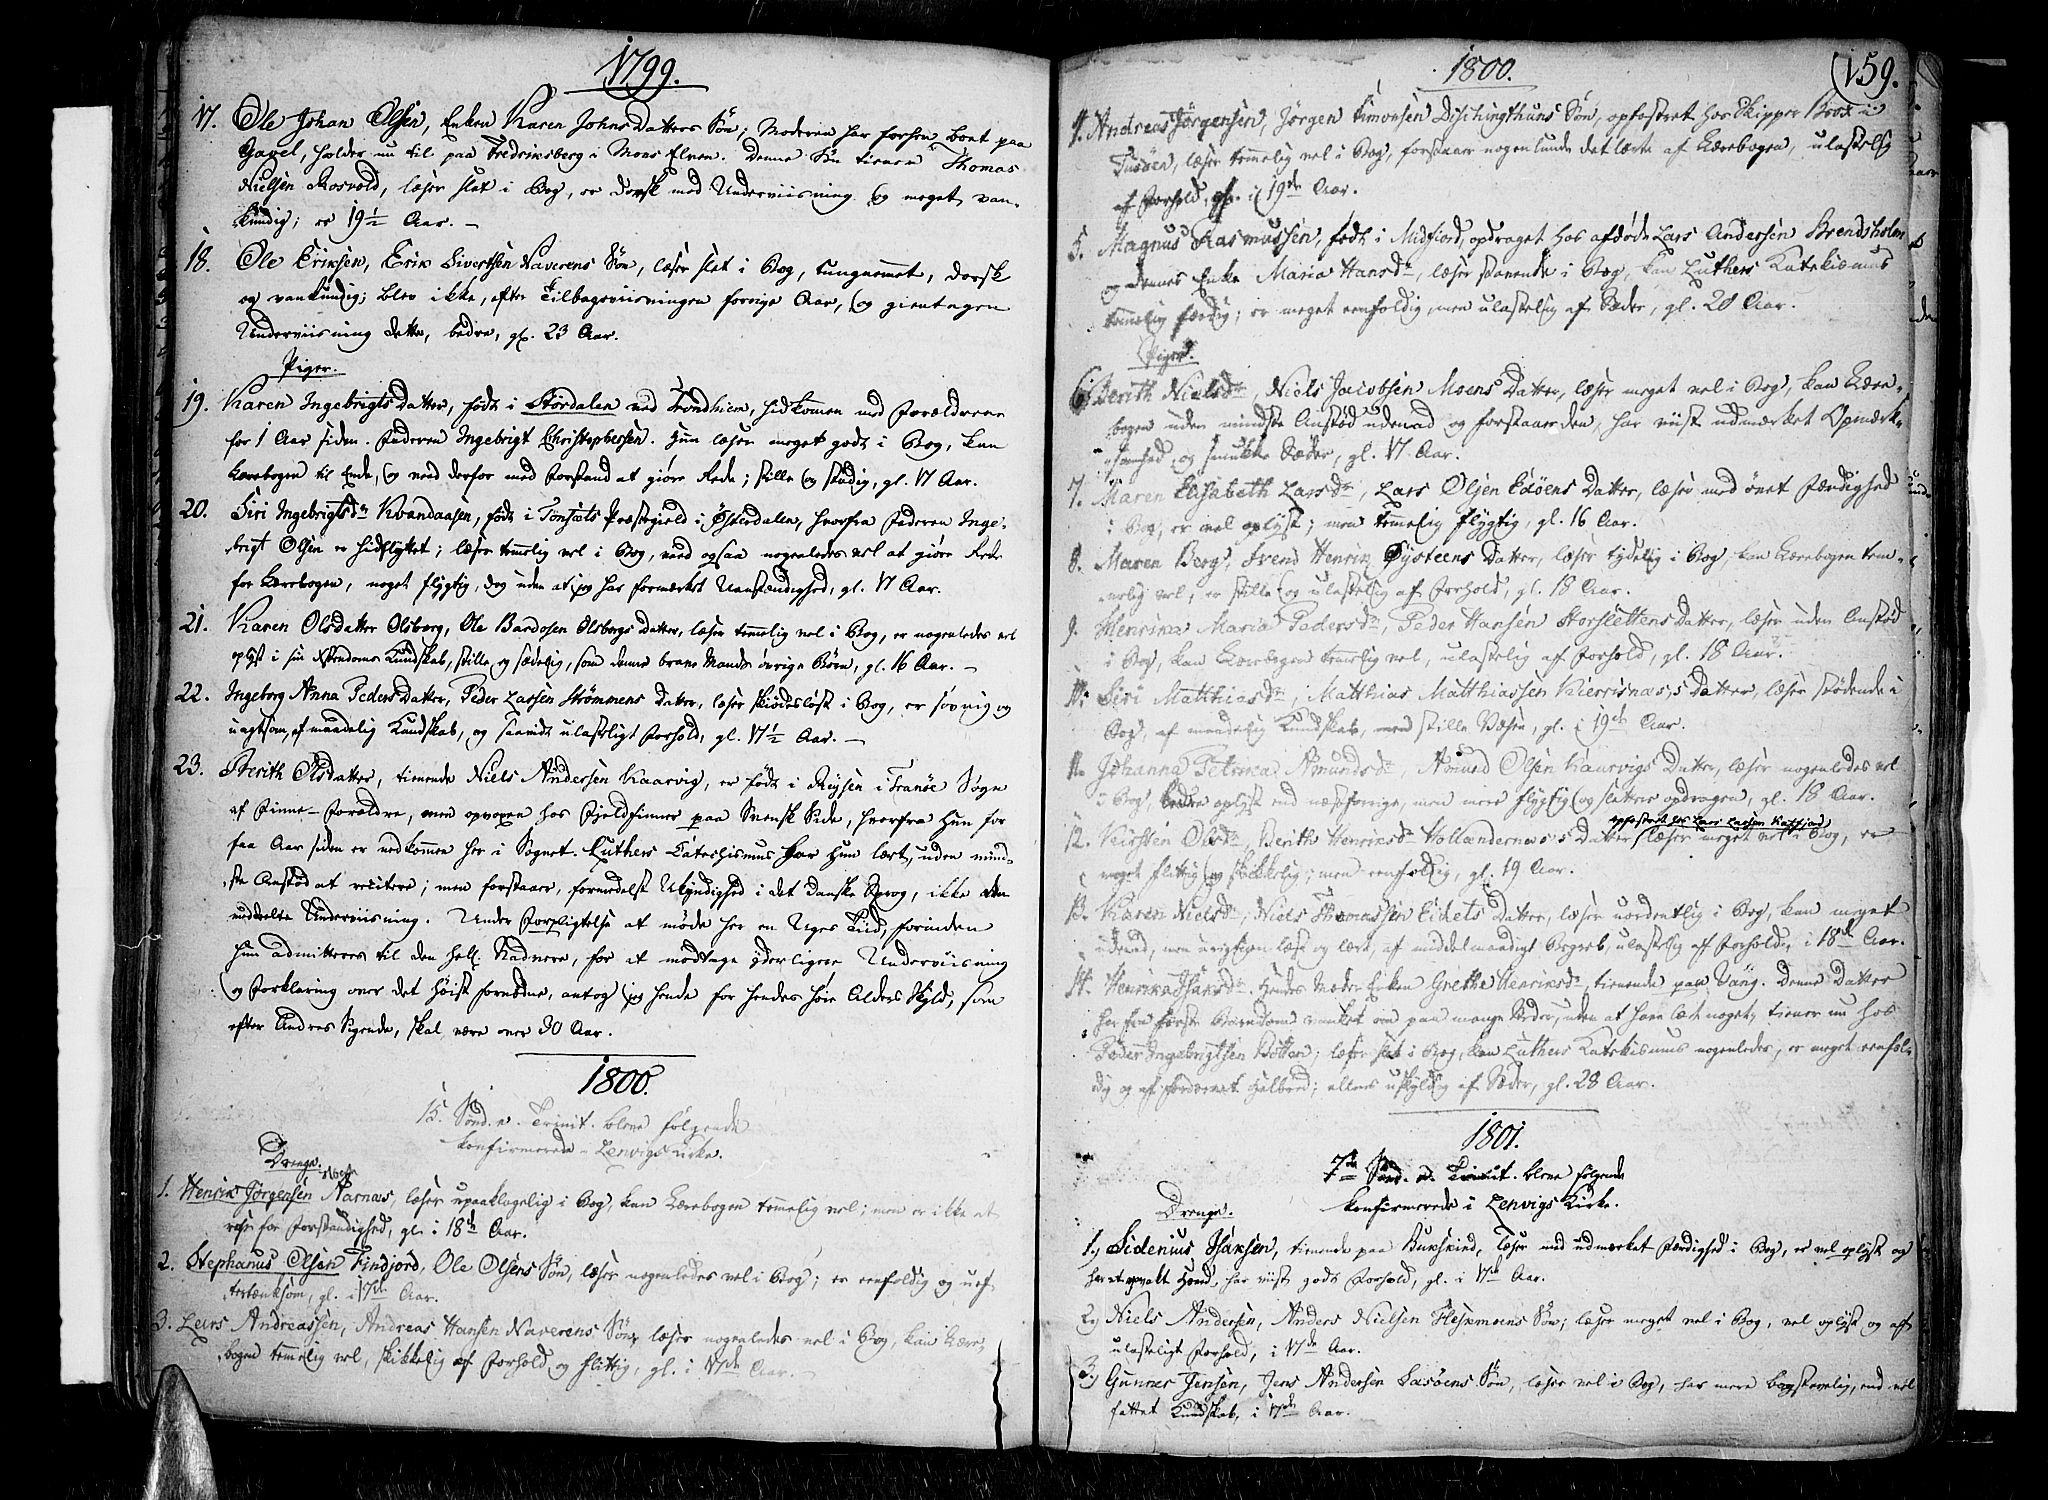 1799.
17. Ole Johan Olsen, Enken Karen Johns Datters Søn; Moderen har forhen boet paa
Gavel, holder nu til paa Fredriksberg i Mons Elven. Denne Søn tiener Thomas
Nielsen Rosvold, læser slet i Bog, er dorsk mod Underviisning og meget van-
kundig; er 19 1/2 Aar. —
18. Ole Eriksen, Erik Sivertsen Naverens Søn, læser slet i Bog, tungnemmet, dorsk
og vankundig; blev ikke, efter Tilbageviisningen forrige Aar, og gientagen
Underviisning dette, bedre, gl. 23 Aar.
Piger.
19. Karen Ingebrigts Datter, født i Størdalen ved Trondhiem, hidkommen med Forældrene
for 1 Aar siden. Faderen Ingebrigt Christophersen. Hun læser meget godt i Bog, kan
Lærebogen til Ende, og veed derfor med Forstand at giøre Rede; stille og stadig, gl. 17 Aar.
20. Siri Ingebrigtsdr Kvandaasen, født i Tønsæts Præstegield i Østerdalen, hvorfra Faderen Inge-
brigt Olsen er hidflyttet; læser temmelig vel i Bog, veed ogsaa nogenledes vel at giøre Rede
for Lærebogen, noget flygtig, dog uden at jeg har formærket Uanstændighed, gl. 17 Aar.
21. Karen Olsdatter Olsborg, Ole Bardosen Olsborgs Datter, læser temmelig vel i Bog, er nogenledes vel
oplyst i sin Christendoms Kundskab, stille og sædelig, som denne brave Mands øvrige Børn, gl. 16 Aar. —
22. Ingeborg Anna Peders Datter, Peder Larsen Strömmens Datter, læser skiødesløst i Bog, er søvnig og
uagtsom, af maadelig Kundskab, og saavidt ulasteligt Forhold, gl. 17 1/2 Aar. —
23. Berith Olsdatter, tienende Niels Andersen Kaarvig, er født i Reysen i Tranöe Sogn
af Finne-Forældre, men opvoxen hos Fjeldfinner paa Svensk Side, hvorfra hun for
faa Aar siden er nedkommen her i Sognet. Luthers Catechismus har hun lært, uden mind-
ste Anstød at recitere; men forstaaer, formedelst Ukyndighed i det danske Sprog, ikke den
meddeelte Underviisning. Under Forpligtelse at møde her en Uges Tiid, forinden
hun admitteres til den hell. Nadvere, for at modtage yderligere Underviisning
og Forklaring over det høist fornødne, antog jeg hende for hendes høie Alders Skyld, som
efter Andres Sigende, skal være over 30 Aar.
1800.
15. Sønd. e. Trinit. bleve følgende
konfirmerede i Lenvigs Kirke.
Drenge.
1. Henrik Jørgensen Aarnæs, læser upaaklagelig i Bog, kan Lærebogen temmelig vel; men er ikke at
rose for Forstandighed, gl. i 18de Aar.
2. Stephanus Olsen Finfjord, Ole Olsens Søn, læser nogenledes vel i Bog; er eenfoldig og uef-
tertænksom, gl. i 17de Aar.
3. Lars Andreassen, Andreas Hansen Naverens Søn, læser nogenledes vel i Bog, kan Lære-
bogen temmelig vel, skikkelig af Forhold og flittig, gl. i 17de Aar. —
1800.
159.
4. Andreas Jørgensen, Jørgen Simonsen Dischingthuns Søn, opfostret hos Skipper Brox i
Tusöen, læser temmelig vel i Bog, forstaaer nogenlunde det lærte af Lærebogen, ulastelig
af Forhold, gl. i 19de Aar.
5. Magnus Rasmussen, født i Midfiord, opdraget hos afdøde Lars Andersen Brendsholm
og dennes Enke Maria Hansdr, læser stavende i Bog, kan Luthers Katekismus
temmelig færdig; er meget eenfoldig, men ulastelig af Sæder, gl. 20 Aar.
Piger.
6. Berith Nielsdr, Niels Jacobsen Moens Datter, læser meget vel i Bog, kan Lære-
bogen uden mindste Anstød udenad og forstaaer den, har viist udmærket Opmærk-
somhed og smukke Sæder, gl. 17 Aar.
7. Maren Elisabeth Larsdr, Lars Olsen Edöens Datter, læser med øvet Færdighed
i Bog, er vel oplyst; men temmelig flygtig, gl. 16 Aar.
8. Maren Berg, Svend Henrik Öysteens Datter, læser tydelig i Bog, kan Lærebogen tem-
melig vel, er stille og ulastelig af Forhold, gl. 18 Aar.
9. Henrika Maria Pedersdr, Peder Hansen Storslettens Datter, læser uden Anstød
i Bog, kan Lærebogen temmelig vel, ulastelig af Forhold, gl. 18 Aar.
10. Siri Matthiasdr, Matthias Matthiassen Kierrisnæs's Datter, læser stødende i
Bog, af maadelig Kundskab, med stille Væsen, gl. i 19de Aar.
11. Johanna Petrika Amundsdr, Amund Olsen Kaarvigs Datter, læser nogenledes vel
i Bog, bedre oplyst end næstforrige, men mere flygtig og slettere opdragen, gl. 18 Aar.
opfostret hos Lars Larsen Kattfiord
12. Kirsten Olsdr, Berith Henriksdr Hollændernæs's Datter, læser meget vel i Bog, er
meget flittig og skikkelig; men eenfoldig, gl. 19 Aar.
13. Karen Nielsdr, Niels Thomassen Eidets Datter, læser uordentlig i Bog, kan meget
udenad, men urigtigen læst og lært, af middelmaadigt Begreb, ulastelig af Forhold, i 18de Aar.
14. Henrika Isaksdr. Hendes Moder Enken Grethe Henriksdr, tienende paa Vang. Denne Datter
har fra første Barndom vanket om paa mange Steder, uden at have lært noget, tiener nu hos
Peder Ingebrigtsen Botten; læser slet i Bog, kan Luthers Katekismus nogenledes, er meget eenfol-
dig og af fordærvet Helbred; ellers uskyldig af Sæder, gl. 28 Aar.
1801.
7de Sønd. e. Trinit. bleve følgende
konfirmerede i Lenvigs Kirke.
Drenge.
1.) Sidenius Isaksen, tienende paa Bukskind, læser med udmærket Færdighed i Bog, er vel oplyst og
har et Haand, har viist godt Forhold, gl. i 17de Aar.
2.) Niels Andersen, Anders Nielsen Flesmoens Søn, læser meget vel i Bog, vel oplyst og af
ulasteligt Forhold, i 17de Aar.
3.) Gunner Jensen, Jens Andersen Lasöens Søn, læser vel i Bog, har mere bogstavelig, end vel
fattet Kundskab, i 17de Aar.